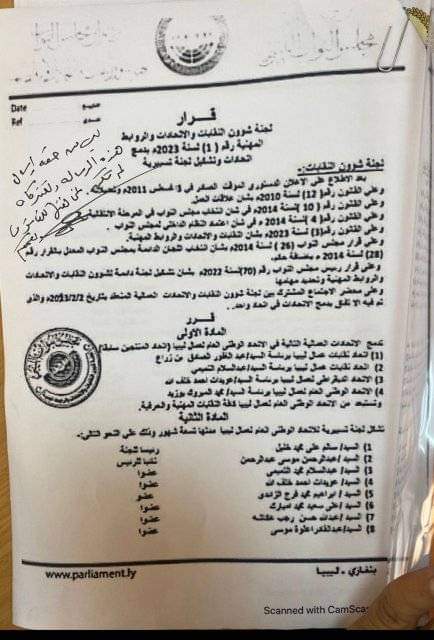 مجلس النواب الليبي
Date التاريخ
Ref
قرار
لجنة شؤون النقابات والاتحادات والروابط
المهنية رقم (1) لسنة 2023م بدمج
اتحادات وتشكيل لجنة تسييرية
لجنة شؤون النقابات:-
بعد الاطلاع على الاعلان الدستوري المؤقت الصادر في 3 اغسطس 2011م وتعديلاته.
وعلى القانون رقم (12) لسنة 2010م بشأن علاقات العمل.
وعلى القانون رقم (10) لسنة 2014م في شأن انتخاب مجلس النواب في المرحلة الانتقالية
وعلى القانون رقم (4) لسنة 2014م في شأن اعتماد النظام الداخلي لمجلس النواب.
وعلى القانون رقم (3) لسنة 2023م بشأن النقابات والاتحادات والروابط المهنية.
وعلى قرار مجلس النواب (26) لسنة 2014م بشأن انتخاب اللجان الدائمة بمجلس النواب المعدل بالقرار رقم
(28) لسنة 2014م باضافة
وعلى قرار رئيس مجلس النواب رقم (70) لسنة 2022م بشأن تشكيل لجنة دائمة لشؤون النقابات والاتحادات
والروابط المهنية وتحديد مهامها
وعلى محضر الاجتماع المشترك بين لجنة شؤون النقابات والاتحادات العمالية المنعقد بتاريخ والذي
تم فيه الاتفاق بدمج الاتحادات في اتحاد واحد.
قرر
المادة الاولى
تدمج الاتحادات العمالية التالية في الاتحاد الوطني العام لعمال ليبيا (اتحاد المنتجين سابقا)
1) اتحاد نقابات عمال ليبيا برئاسة السيد/عبد الغفور الصادق بن زراع
2) اتحاد نقابات عمال ليبيا برئاسة السيد/عبدالسلام التميمي
3) الاتحاد الديمقراطي لعمال ليبيا برئاسة السيد/عويدات احمد خلف الله
4) الاتحاد الوطني العام لعمال ليبيا برئاسة السيد/محمد المبروك بوزيد
وتستبعد من الاتحاد الوطني العام لعمال ليبيا كافة النقابات المهنية والحرفية.
المادة الثانية
تشكل لجنة تسييرية للاتحاد الوطني العام لعمال ليبيا مدتها تسعة شهور وذلك على النحو التالي:-
1) السيد/ سالم علي محمد خليل رئيسا للجنة
2) السيد/ عبدالرحمن موسى عبدالرحمن نائبا للرئيس
3) السيد/عبدالسلام محمد التميمي عضوا
4) السيد/ عويدات احمد خلف الله عضوا
5) السيد / ابراهيم محمد فرج الزائدي عضو
6) السيد/ علي سعيد محمد امبارك عضوا
7) السيد/عبدالله حسن رجب عضوا
8) السيد/عبدالقادر موسى عضوا
بنغازي - ليبيا www.parliament.ly
Scanned with CamSca